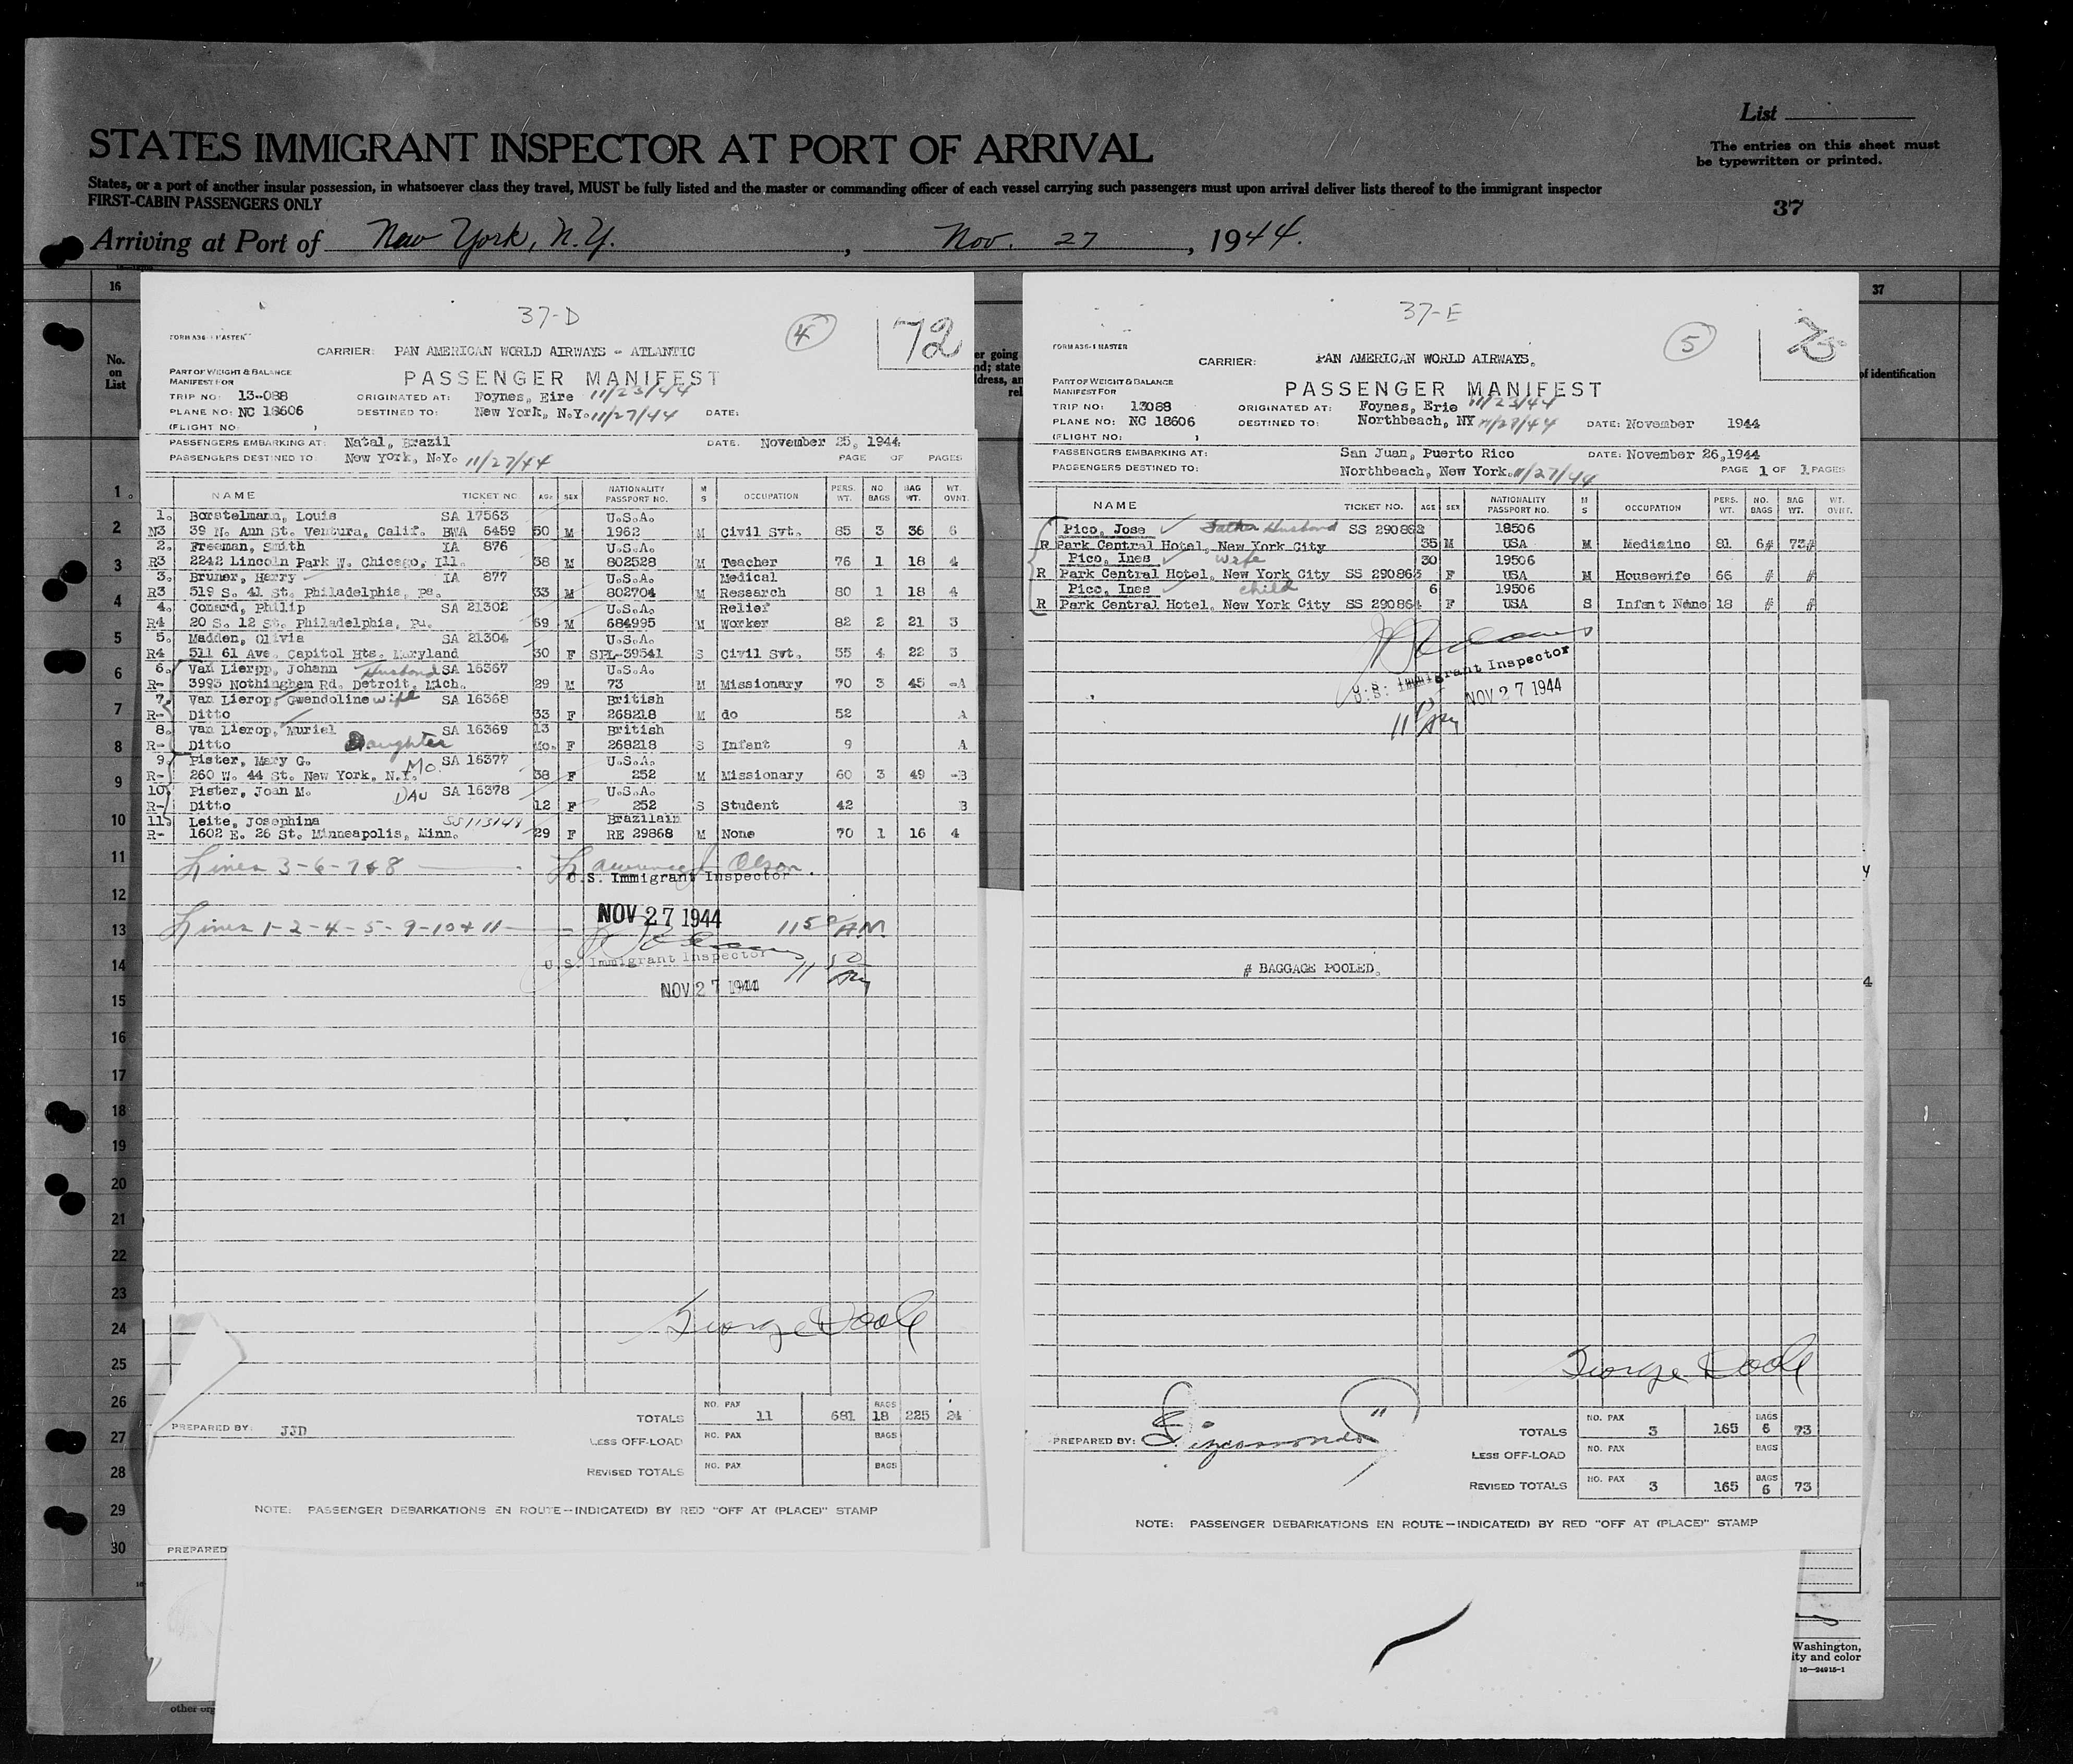 List
The entries on this sheet must
be typewritten or printed.
STATES IMMIGRANT INSPECTOR AT PORT OF ARRIVAL
States, or a port of another insular possession, in whatsoever class they travel, MUST be fully listed and the master or commanding officer of each vessel carrying such passengers must upon arrival deliver lists thereof to the immigrant inspector
FIRST-CABIN PASSENGERS ONLY
37
Arriving at Port of New York, N.Y., Nov. 27, 1944.
16
No.
on
List
1
2
3
4
5
6
7
8
9
10
11
12
13
14
15
16
17
18
19
20
21
22
23
24
25
26
27
28
29
30
37-D
4
72
FORM A36-1 MASTER
CARRIER: PAN AMERICAN WORLD AIRWAYS - ATLANTIC
PART OF WEIGHT & BALANCE
MANIFEST FOR
PASSENGER MANIFEST
TRIP NO: 13-088 ORIGINATED AT: Foynes, Eire 11/23/44
PLANE NO: NC 18606 DESTINED TO: New York, N.Y. 11/27/44 DATE:
(FLIGHT NO: )
PASSENGERS EMBARKING AT: Natal, Brazil DATE: November 25, 1944
PASSENGERS DESTINED TO: New York, N.Y. 11/27/44 PAGE OF PAGES
NAME TICKET NO. AGE SEX NATIONALITY PASSPORT NO. M S OCCUPATION PERS. WT. NO BAGS BAG WT. WT. OVNT.
1. Borstelmann, Louis SA 17563 U.S.A.
N3 39 N. Ann St. Ventura, Calif. BWA 6459 50 M 1962 M Civil Svt. 85 3 36 6
2. Freeman, Smith IA 876 U.S.A.
R3 2242 Lincoln Park W. Chicago, Ill. 38 M 802528 M Teacher 76 1 18 4
3. Bruner, Herry IA 877 U.S.A. Medical
R3 519 S. 41 St. Philadelphia, Pa. 33 M 802704 M Research 80 1 18 4
4. Conard, Philip SA 21302 U.S.A. Relief
R4 20 S. 12 St. Philadelphia, Pa. 69 M 684995 M Worker 82 2 21 3
5. Madden, Olivia SA 21304 U.S.A.
R4 511 61 Ave. Capitol Hts. Maryland 30 F SPL-39541 S Civil Svt. 55 4 22 3
6. Van Lierop, Johann Husband SA 16367 U.S.A.
R- 3993 Nothinghem Rd. Detroit, Mich. 29 M 73 M Missionary 70 3 45 -A
7. Van Lierop, Gwendoline wife SA 16368 British
R- Ditto 33 F 268218 M do 52 A
8. Van Lierop, Muriel SA 16369 13 British
R- Ditto Daughter Mo. F 268218 S Infant 9 A
9. Pister, Mary G. Mo. SA 16377 U.S.A.
R- 260 W. 44 St. New York, N.Y. 38 F 252 M Missionary 60 3 49 -B
10. Pister, Joan M. DAU SA 16378 U.S.A.
R- Ditto 12 F 252 S Student 42 B
11. Leite, Josephina SS113149 Brazilain
R- 1602 E. 26 St. Minneapolis, Minn. 29 F RE 29868 M None 70 1 16 4
Lines 3-6-7&8 Lawrence J. Olson
U.S. Immigrant Inspector
NOV 27 1944
Lines 1-2-4-5-9-10+11 11 50 AM
U.S. Immigrant Inspector
NOV 27 1944
11 50 AM
George Doole
PREPARED BY: JJD
TOTALS NO. PAX 11 681 BAGS 18 225 24
LESS OFF-LOAD NO. PAX BAGS
REVISED TOTALS NO. PAX BAGS
NOTE: PASSENGER DEBARKATIONS EN ROUTE—INDICATE(D) BY RED "OFF AT (PLACE)" STAMP
PREPARED
other
er going
nd; state
ddress, an
rel
37-E
5
75
FORM A36-1 MASTER
CARRIER: PAN AMERICAN WORLD AIRWAYS.
PART OF WEIGHT & BALANCE
MANIFEST FOR
PASSENGER MANIFEST
TRIP NO: 13088 ORIGINATED AT: Foynes, Erie 11/23/44
PLANE NO: NC 18606 DESTINED TO: Northbeach, NY 11/27/44 DATE: November 1944
(FLIGHT NO: )
PASSENGERS EMBARKING AT: San Juan, Puerto Rico DATE: November 26,1944
PASSENGERS DESTINED TO: Northbeach, New York. 11/27/44 PAGE 1 OF 1 PAGES
NAME TICKET NO. AGE SEX NATIONALITY PASSPORT NO. M S OCCUPATION PERS. WT. NO. BAGS BAG WT. WT. OVNT.
Pico, Jose Father Husband SS 290862 18506
R Park Central Hotel, New York City 35 M USA M Medisino 81 6# 73#
Pico, Ines wife 30 19506
R Park Central Hotel, New York City SS 290863 F USA M Housewife 66 # #
Pico, Ines child 6 19506
R Park Central Hotel, New York City SS 290864 F USA S Infant None 18 # #
U.S. Immigrant Inspector
NOV 27 1944
# BAGGAGE POOLED.
George Doole
PREPARED BY:
TOTALS NO. PAX 3 165 BAGS 6 73
LESS OFF-LOAD NO. PAX BAGS
REVISED TOTALS NO. PAX 3 165 BAGS 6 73
NOTE: PASSENGER DEBARKATIONS EN ROUTE—INDICATE(D) BY RED "OFF AT (PLACE)" STAMP
37
of identification
y
4
Washington,
ity and color
16—24915-1